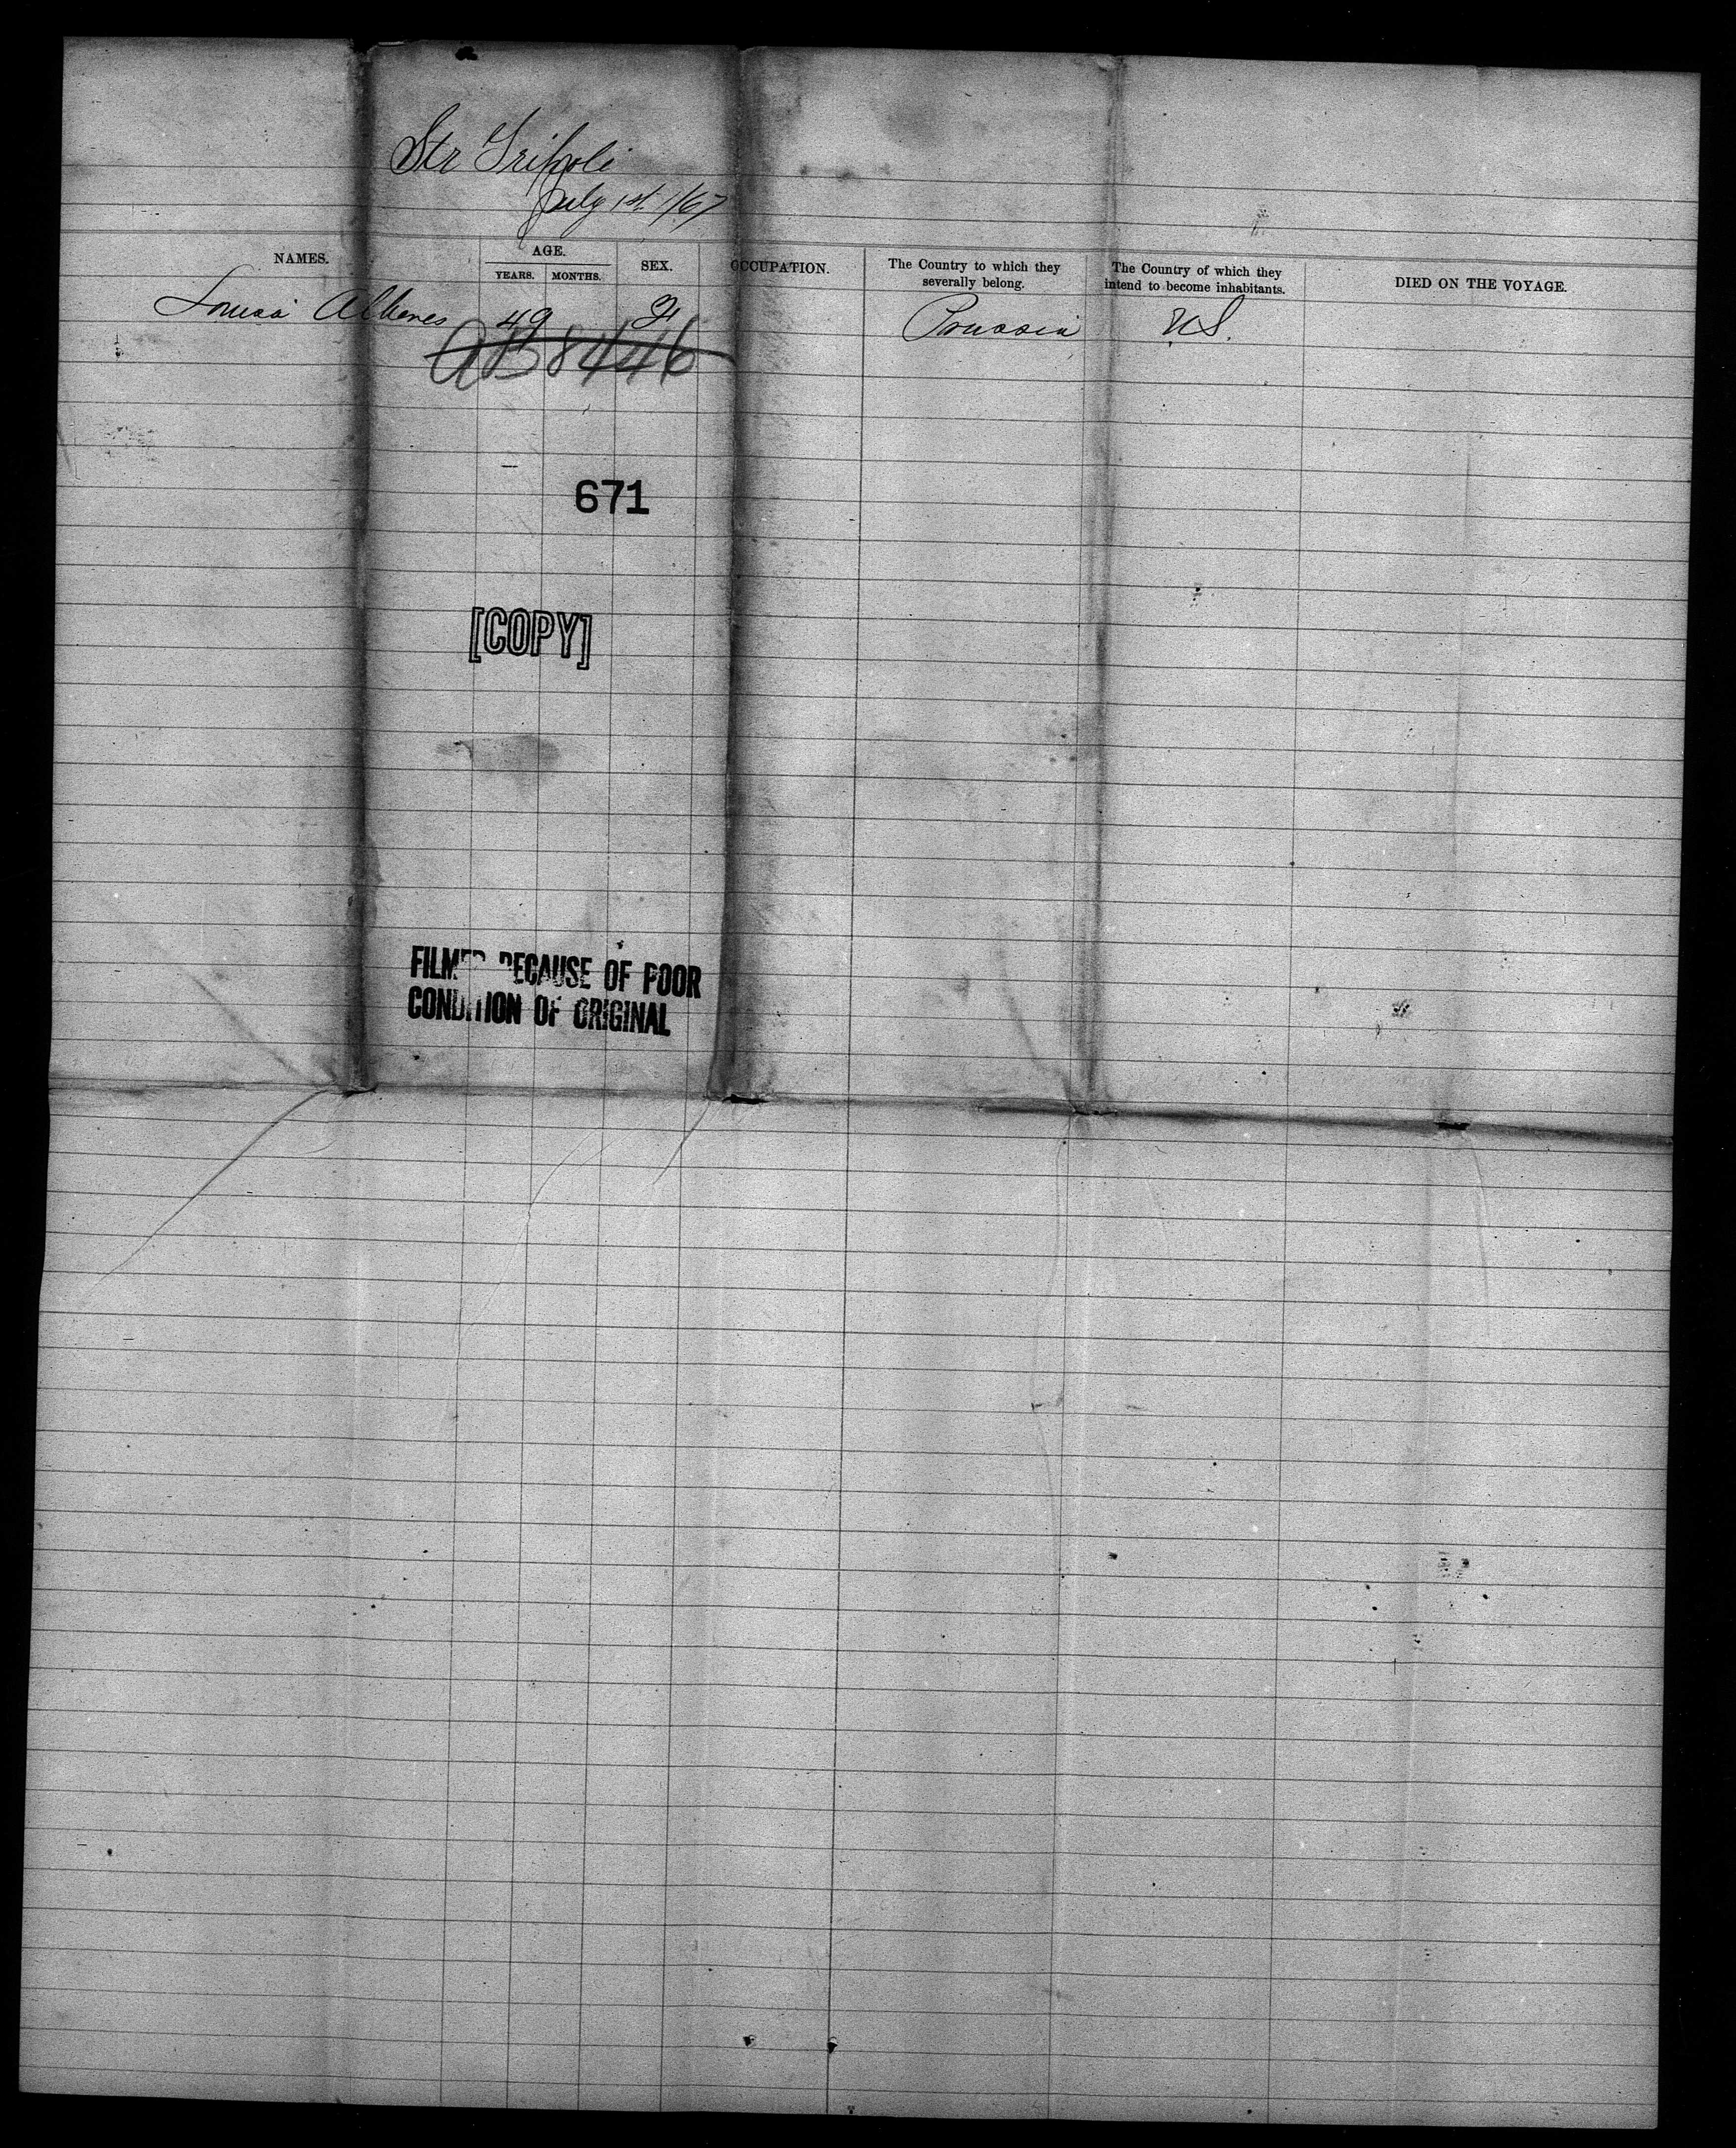 Str Tripoli
July 1st 1/67
NAMES. AGE. YEARS. MONTHS. SEX. OCCUPATION. The Country to which they severally belong. The Country of which they intend to become inhabitants. DIED ON THE VOYAGE.
Louisa 49 F Prussia U.S.
8446
671
[COPY]
FILMED BECAUSE OF POOR
CONDITION OF ORIGINAL